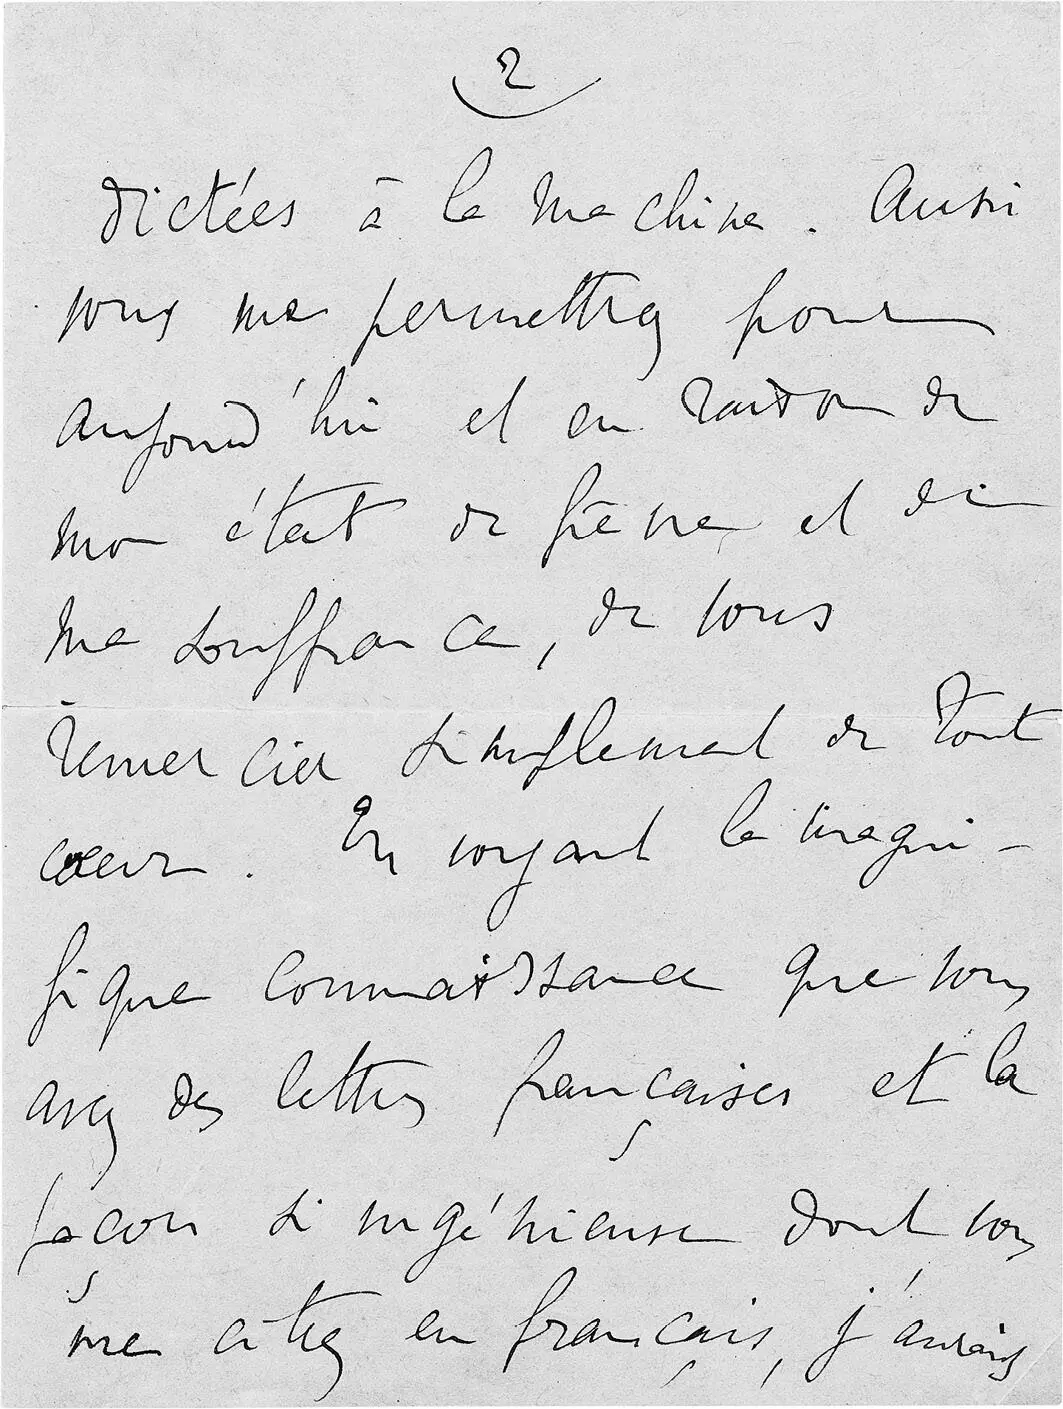 2
dictées à la machine. Aussi
vous me permettrez pour
aujourd'hui et en raison de
mon état de fièvre et de
ma souffrance, de vous
remercier simplement de tout
cœur. En voyant la magni-
fique connaissance que vous
avez des lettres françaises et la
façon si ingénieuse dont vous
me citez en français, j'aurais